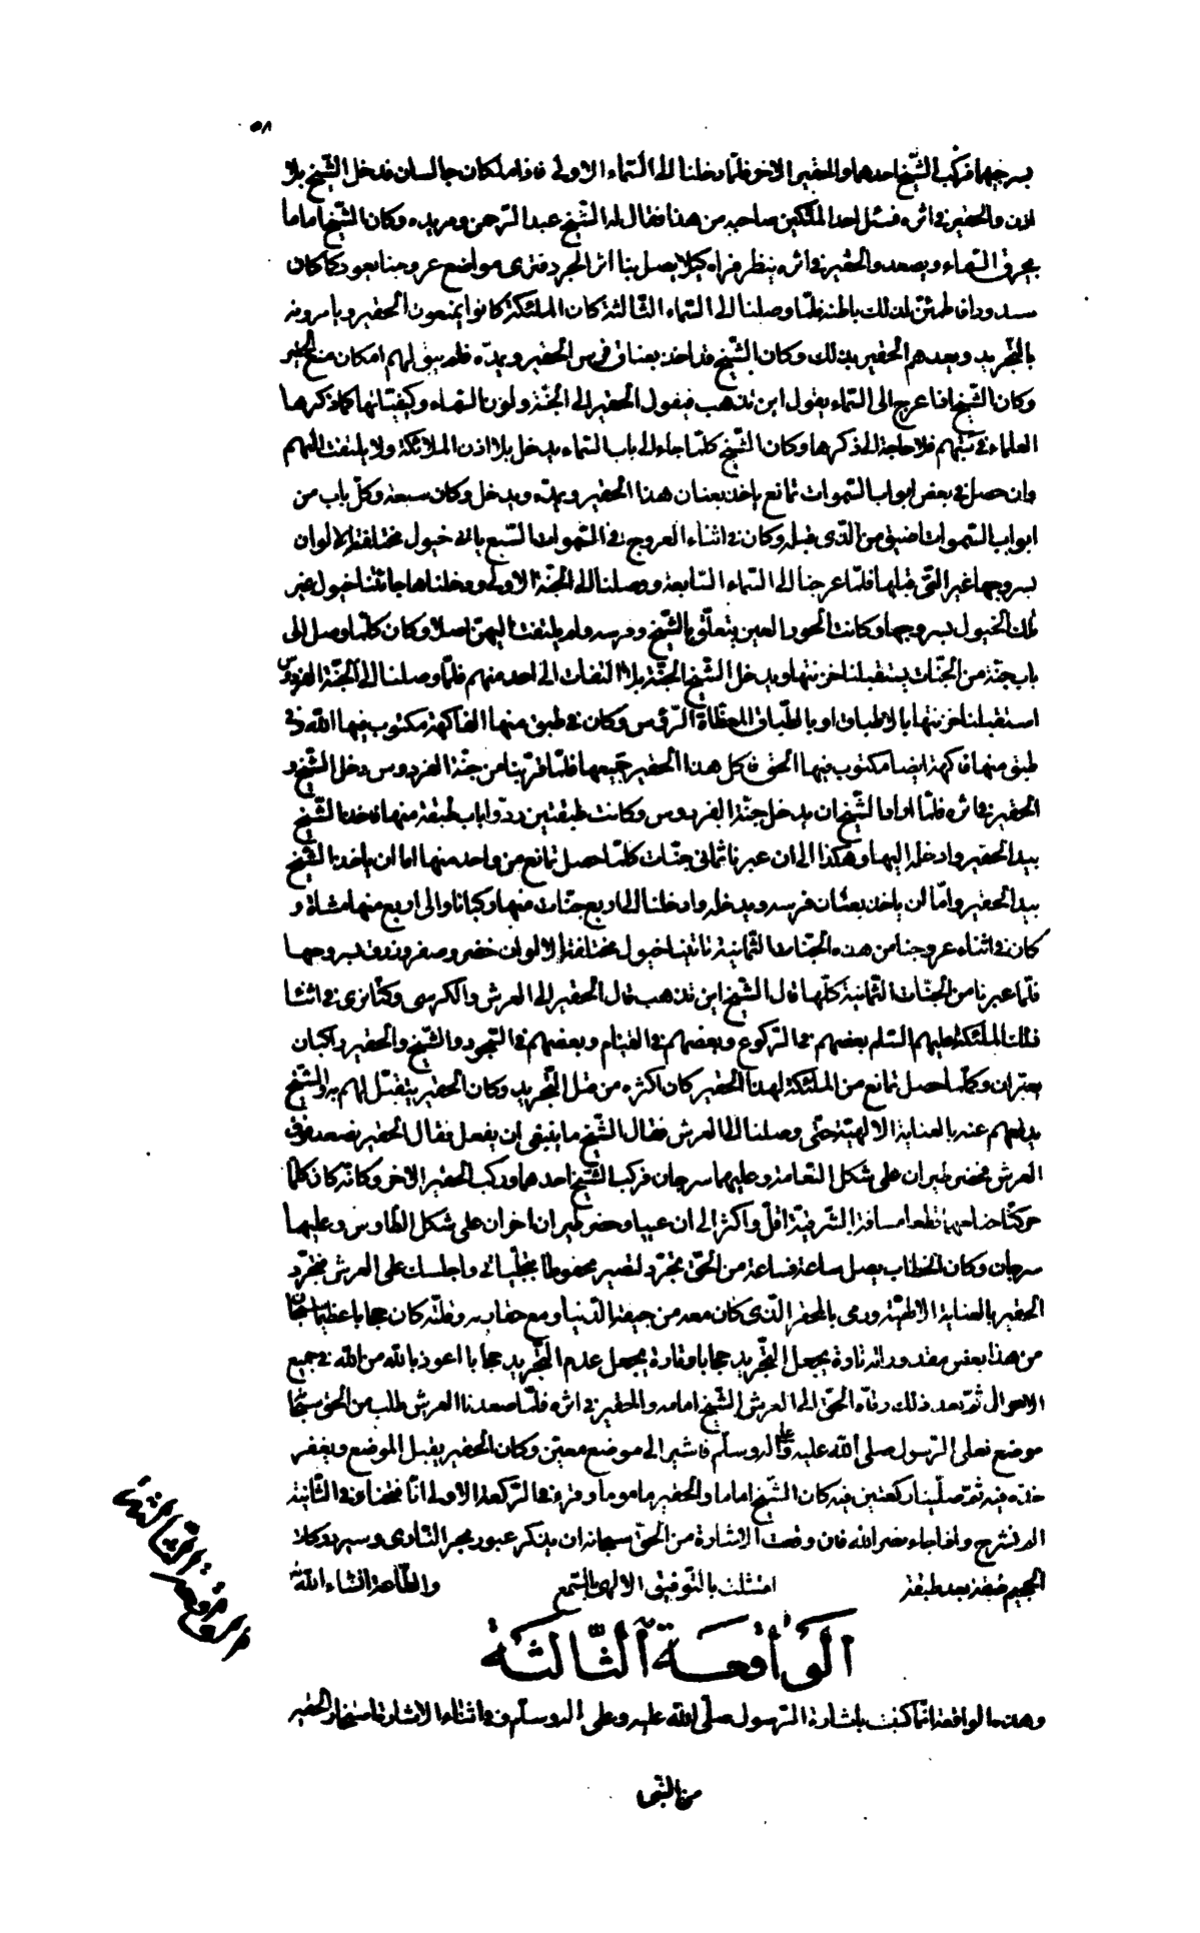 ٥٨
بسرجيها فركب الشيخ احدهما والحقير الاخر فلما دخلنا الى السماء الاولى فاذا ملكان جالسان فدخل الشيخ بلا
اذن والحقير في اثره فسئل احد الملكين صاحبه من هذا فقال له الشيخ عبد الرحمن ومريده وكان الشيخ اماما
يحرق السماء ويصعد والحقير في اثره ينظر فراه كيلا يصل بنا اثر المجرد فترى مواضع عروجنا يعود كما كان
مسدودا فاطمئن لذلك باطنه فلما وصلنا الى السماء الثالثة كان الملئكة كانوا يمنعون الحقير ويامرونه
بالتجريد ويعدهم الحقير بذلك وكان الشيخ قد اخذ بعنان فرس الحقير ويمده فلم يبق لهم امكان منع الحقير
وكان الشيخ اذا عرج الى السماء يقول اين تذهب فيقول الحقير الى الجنة ولون السماء وكيفياتها كما ذكرها
العلماء في كتبهم فلا حاجة الى ذكرها وكان الشيخ كلما جاء الى باب السماء يدخل بلا اذن الملائكة ولا يلتفت اليهم
وان حصل في بعض ابواب السموات تمانع ياخذ بعنان هذا الحقير ويمده ويدخل وكان سبعة وكل باب من
ابواب السموات اضيق من الذى قبله وكان في اثناء العروج في السموات السبع ياتى خيول مختلفة الالوان
بسروجها غير التى قبلها فلما عرجنا الى السماء السابعة ووصلنا الى الجنة الاولى ودخلناها جائتنا خيول غير
تلك الخيول بسروجها وكانت الحور العين يتعلق بالشيخ وفرسه ولم يلتفت اليهن اصلا وكان كلما وصل الى
باب جنة من الجنات يستقبلنا خزنتها ويدخل الشيخ الجنة بلا التفات الى احد منهم فلما وصلنا الى الجنة الفردوس
استقبلنا خزنتها بالاطباق او بالطباق المغطاة الرؤس وكان في طبق منها الفاكهة مكتوب فيها الله في
طبق منها فاكهة ايضا مكتوب فيها الحق فاكل هذا الحقير جميعها فلما قربنا من جنة الفردوس دخل الشيخ و
الحقير في اثره فلما اراد الشيخ ان يدخل جنة الفردوس وكانت طبقتين ردوا باب طبقة منها فاخذ الشيخ
بيد الحقير وادخله اليها وهكذا الى ان عبرنا ثمانى جنات كلما حصل تمانع من واحد منها اما ان ياخذ الشيخ
بيد الحقير واما ان ياخذ بعنان فرسه ويدخله وادخلنا الى اربع جنات منها ركبانا والى اربع منها مشاة و
كان في اثناء عروجنا من هذه الجنات الثمانية تاتينا خيول مختلفة الالوان خضر وصفر وزرق بسروجها
فلما عبرنا من الجنات الثمانية كلها قال الشيخ اين تذهب قال الحقير الى العرش والكرسى وكنا نرى في اثنا
ذلك الملئكة عليهم السلم بعضهم في الركوع وبعضهم في القيام وبعضهم في السجود والشيخ والحقير راكبان
يعبران وكلما حصل تمانع من الملئكة لهذا الحقير كان اكثره من قبل التجريد وكان الحقير يتقبل لهم به والشيخ
يدفعهم عنه بالعناية الالهية حتى وصلنا الى العرش فقال الشيخ ما ينبغى ان يفعل فقال الحقير نصعد فوق
العرش فحضر طيران على شكل النعامة وعليهما سرجان فركب الشيخ احدهما وركب الحقير الاخر وكانه كان كلما
حركتا جناحيهما قطعا مسافة الشرقية اقل واكثر الى ان عييا وحضر طيران اخران على شكل الطاوس وعليهما
سرجان وكان الخطاب يصل ساعة فساعة من الحق تجرد لتصير محفوظا بتجلياتى واجلسك على العرش فتجرد
الحقير بالعناية الالهية ورمى بالمحقر الذى كان معه من جيفة الدنيا ومع حقارته وقلته كان حجابا عظيما سبحان
من هذا بعض مقدوراته تارة يجعل التجريد حجابا وتارة يجعل عدم التجريد حجابا اعوذ بالله من الله في جميع
الاحوال ثم بعد ذلك رقاه الحق الى العرش الشيخ امامه والحقير في اثره فلما صعدنا العرش طلب من الحق سبحانه
موضع نعلى الرسول صلى الله عليه وعلى اله وسلم فاشير الى موضع معين وكان الحقير يقبل الموضع ويعفر
خده فيه ثم صلينا ركعتين فيه كان الشيخ اماما والحقير ماموما وقرء في الركعة الاولى انا فتحنا وفي الثانية
الم نشرح واذا جاء نصر الله فان وقعت الاشارة من الحق سبحانه ان يذكر عبور مجر التنادى وسيره دركات
الجحيم طبقة بعد طبقة امتثلت بالتوفيق الالهى بالسمع والطاعة انشاء الله تعالى
الواقعة الثالثة
الواقعة الثالثة
وهذه الواقعة انما كتبت باشارة الرسول صلى الله عليه وعلى اله وسلم وفي اثناء الاشارة استخار الحقير
من النبى